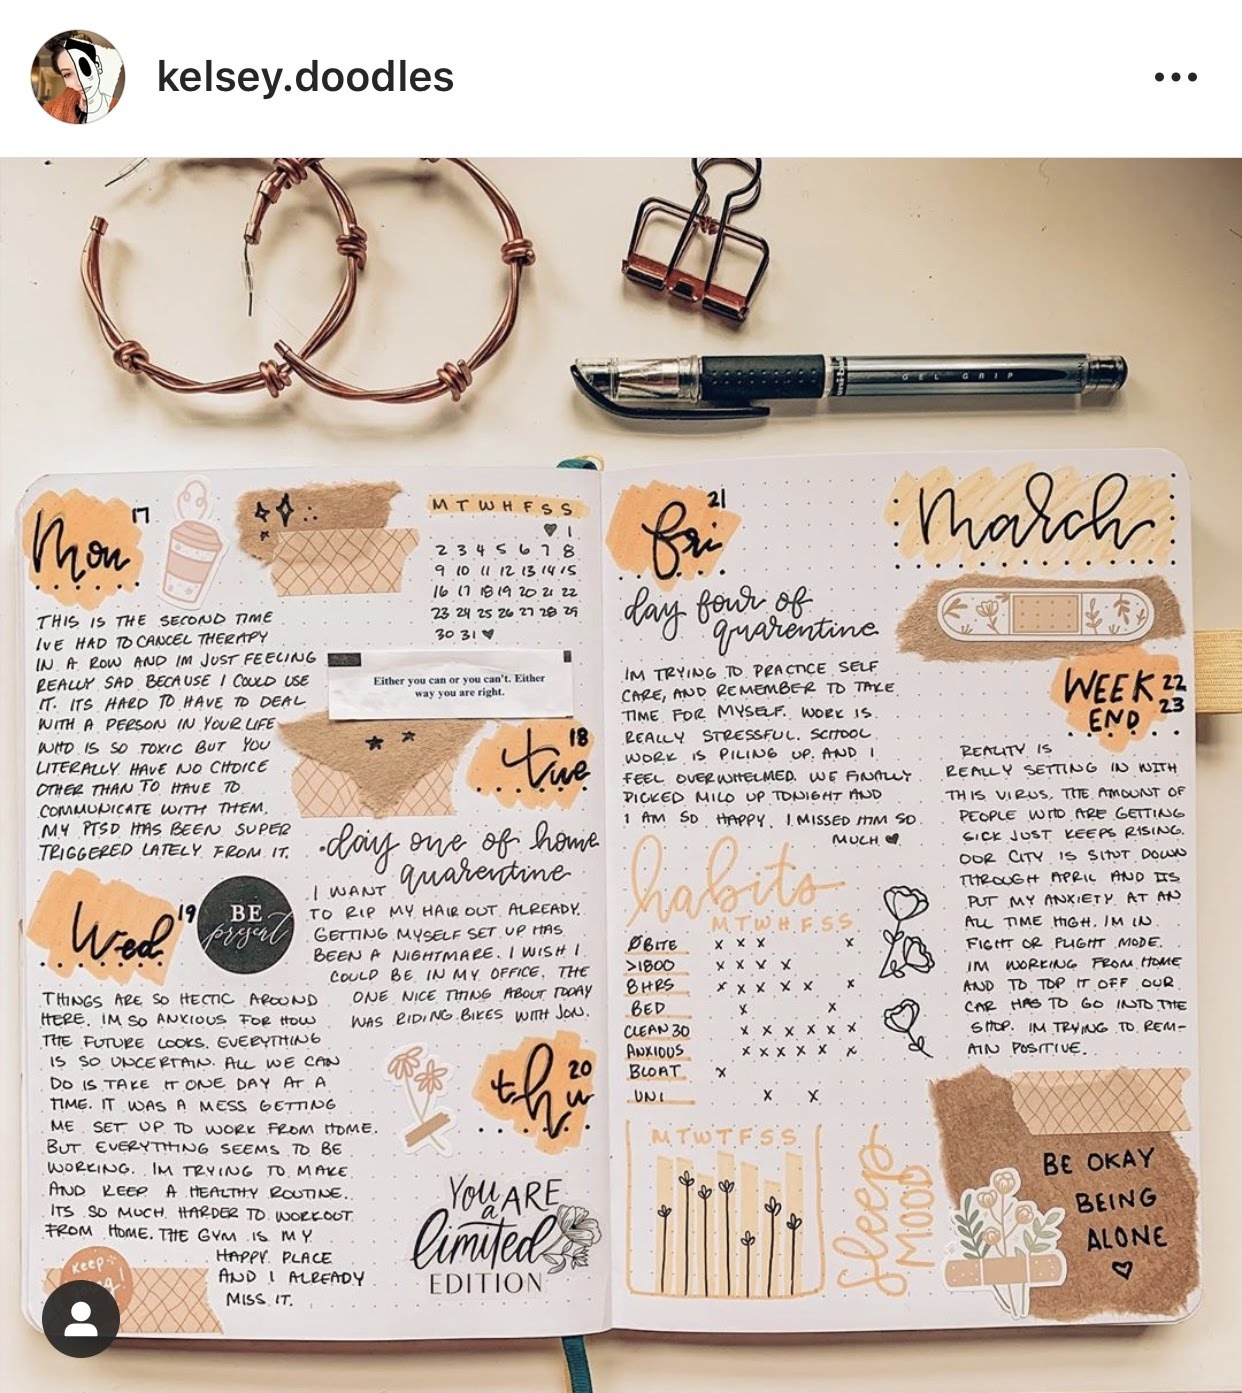 kelsey.doodles
GEL GRIP
Mon 17
M T W H F S S
1
2 3 4 5 6 7 8
9 10 11 12 13 14 15
16 17 18 19 20 21 22
23 24 25 26 27 28 29
30 31
THIS IS THE SECOND TIME
IVE HAD TO CANCEL THERAPY
IN A ROW AND IM JUST FEELING
REALLY SAD BECAUSE I COULD USE
IT. ITS HARD TO HAVE TO DEAL
WITH A PERSON IN YOUR LIFE
WHO IS SO TOXIC BUT YOU
LITERALLY HAVE NO CHOICE
OTHER THAN TO HAVE TO
COMMUNICATE WITH THEM.
MY PTSD HAS BEEN SUPER
TRIGGERED LATELY FROM IT.
Either you can or you can't. Either
way you are right.
tue 18
day one of home
quarentine
I WANT
TO RIP MY HAIR OUT ALREADY.
GETTING MYSELF SET UP HAS
BEEN A NIGHTMARE. I WISH I
COULD BE IN MY OFFICE. THE
ONE NICE THING ABOUT TODAY
WAS RIDING BIKES WITH JON.
Wed 19
BE
present
THINGS ARE SO HECTIC AROUND
HERE. IM SO ANXIOUS FOR HOW
THE FUTURE LOOKS. EVERYTHING
IS SO UNCERTAIN. ALL WE CAN
DO IS TAKE IT ONE DAY AT A
TIME. IT WAS A MESS GETTING
ME SET UP TO WORK FROM HOME.
BUT EVERYTHING SEEMS TO BE
WORKING. IM TRYING TO MAKE
AND KEEP A HEALTHY ROUTINE.
ITS SO MUCH HARDER TO WORKOUT
FROM HOME. THE GYM IS MY
HAPPY PLACE
AND I ALREADY
MISS IT.
keep
thu 20
YOU ARE
a
limited
EDITION
fri 21
day four of
quarentine
IM TRYING TO PRACTICE SELF
CARE, AND REMEMBER TO TAKE
TIME FOR MYSELF. WORK IS
REALLY STRESSFUL. SCHOOL
WORK IS PILING UP. AND I
FEEL OVERWHELMED. WE FINALLY
PICKED MILO UP TONIGHT AND
I AM SO HAPPY. I MISSED HIM SO
MUCH
March
WEEK 22
END 23
REALITY IS
REALLY SETTING IN WITH
THIS VIRUS. THE AMOUNT OF
PEOPLE WHO ARE GETTING
SICK JUST KEEPS RISING.
OUR CITY IS SHUT DOWN
THROUGH APRIL AND ITS
PUT MY ANXIETY AT AN
ALL TIME HIGH. IM IN
FIGHT OR FLIGHT MODE.
IM WORKING FROM HOME
AND TO TOP IT OFF OUR
CAR HAS TO GO INTO THE
SHOP. IM TRYING TO REM-
AIN POSITIVE.
habits
M T W H F S S
ØBITE x x x x
>1800 x x x x
8HRS x x x x x x
BED x x
CLEAN 30 x x x x x x
ANXIOUS x x x x x x
BLOAT x
UNI x x
M T W T F S S
Sleep
MOOD
BE OKAY
BEING
ALONE